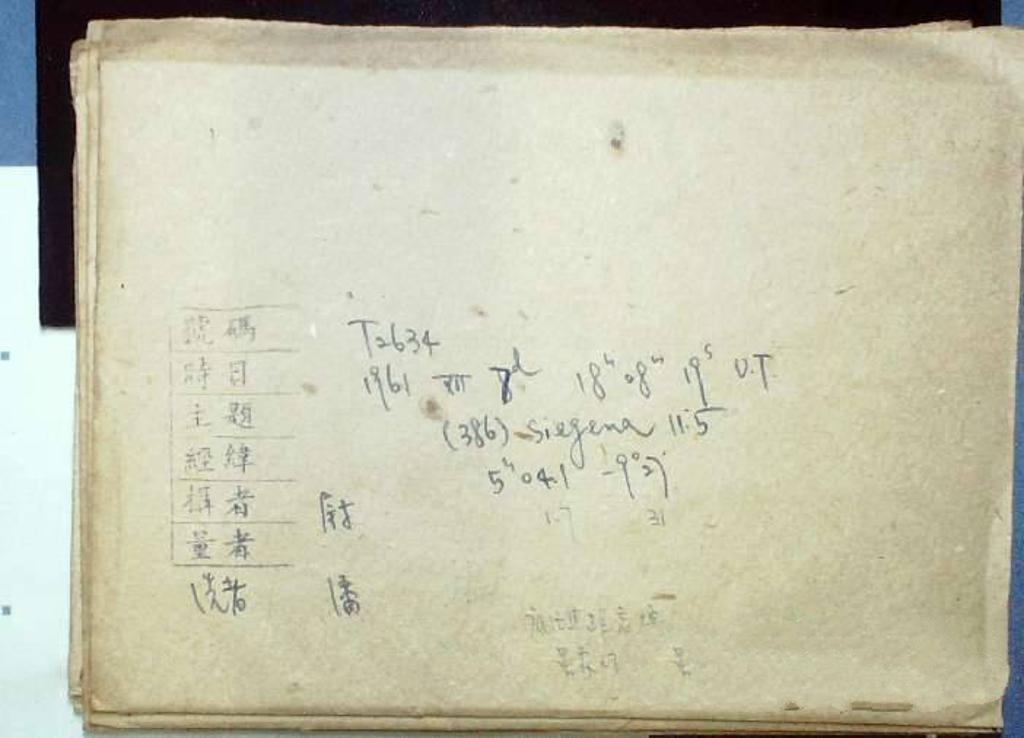 號碼 T2634
時日 1961 XII 8d 18h 08m 19s U.T.
主題 (386) Siegena 11.5
經緯 5h04.1 -9°27'
1.7 31
攝者
量者
洗者 潘